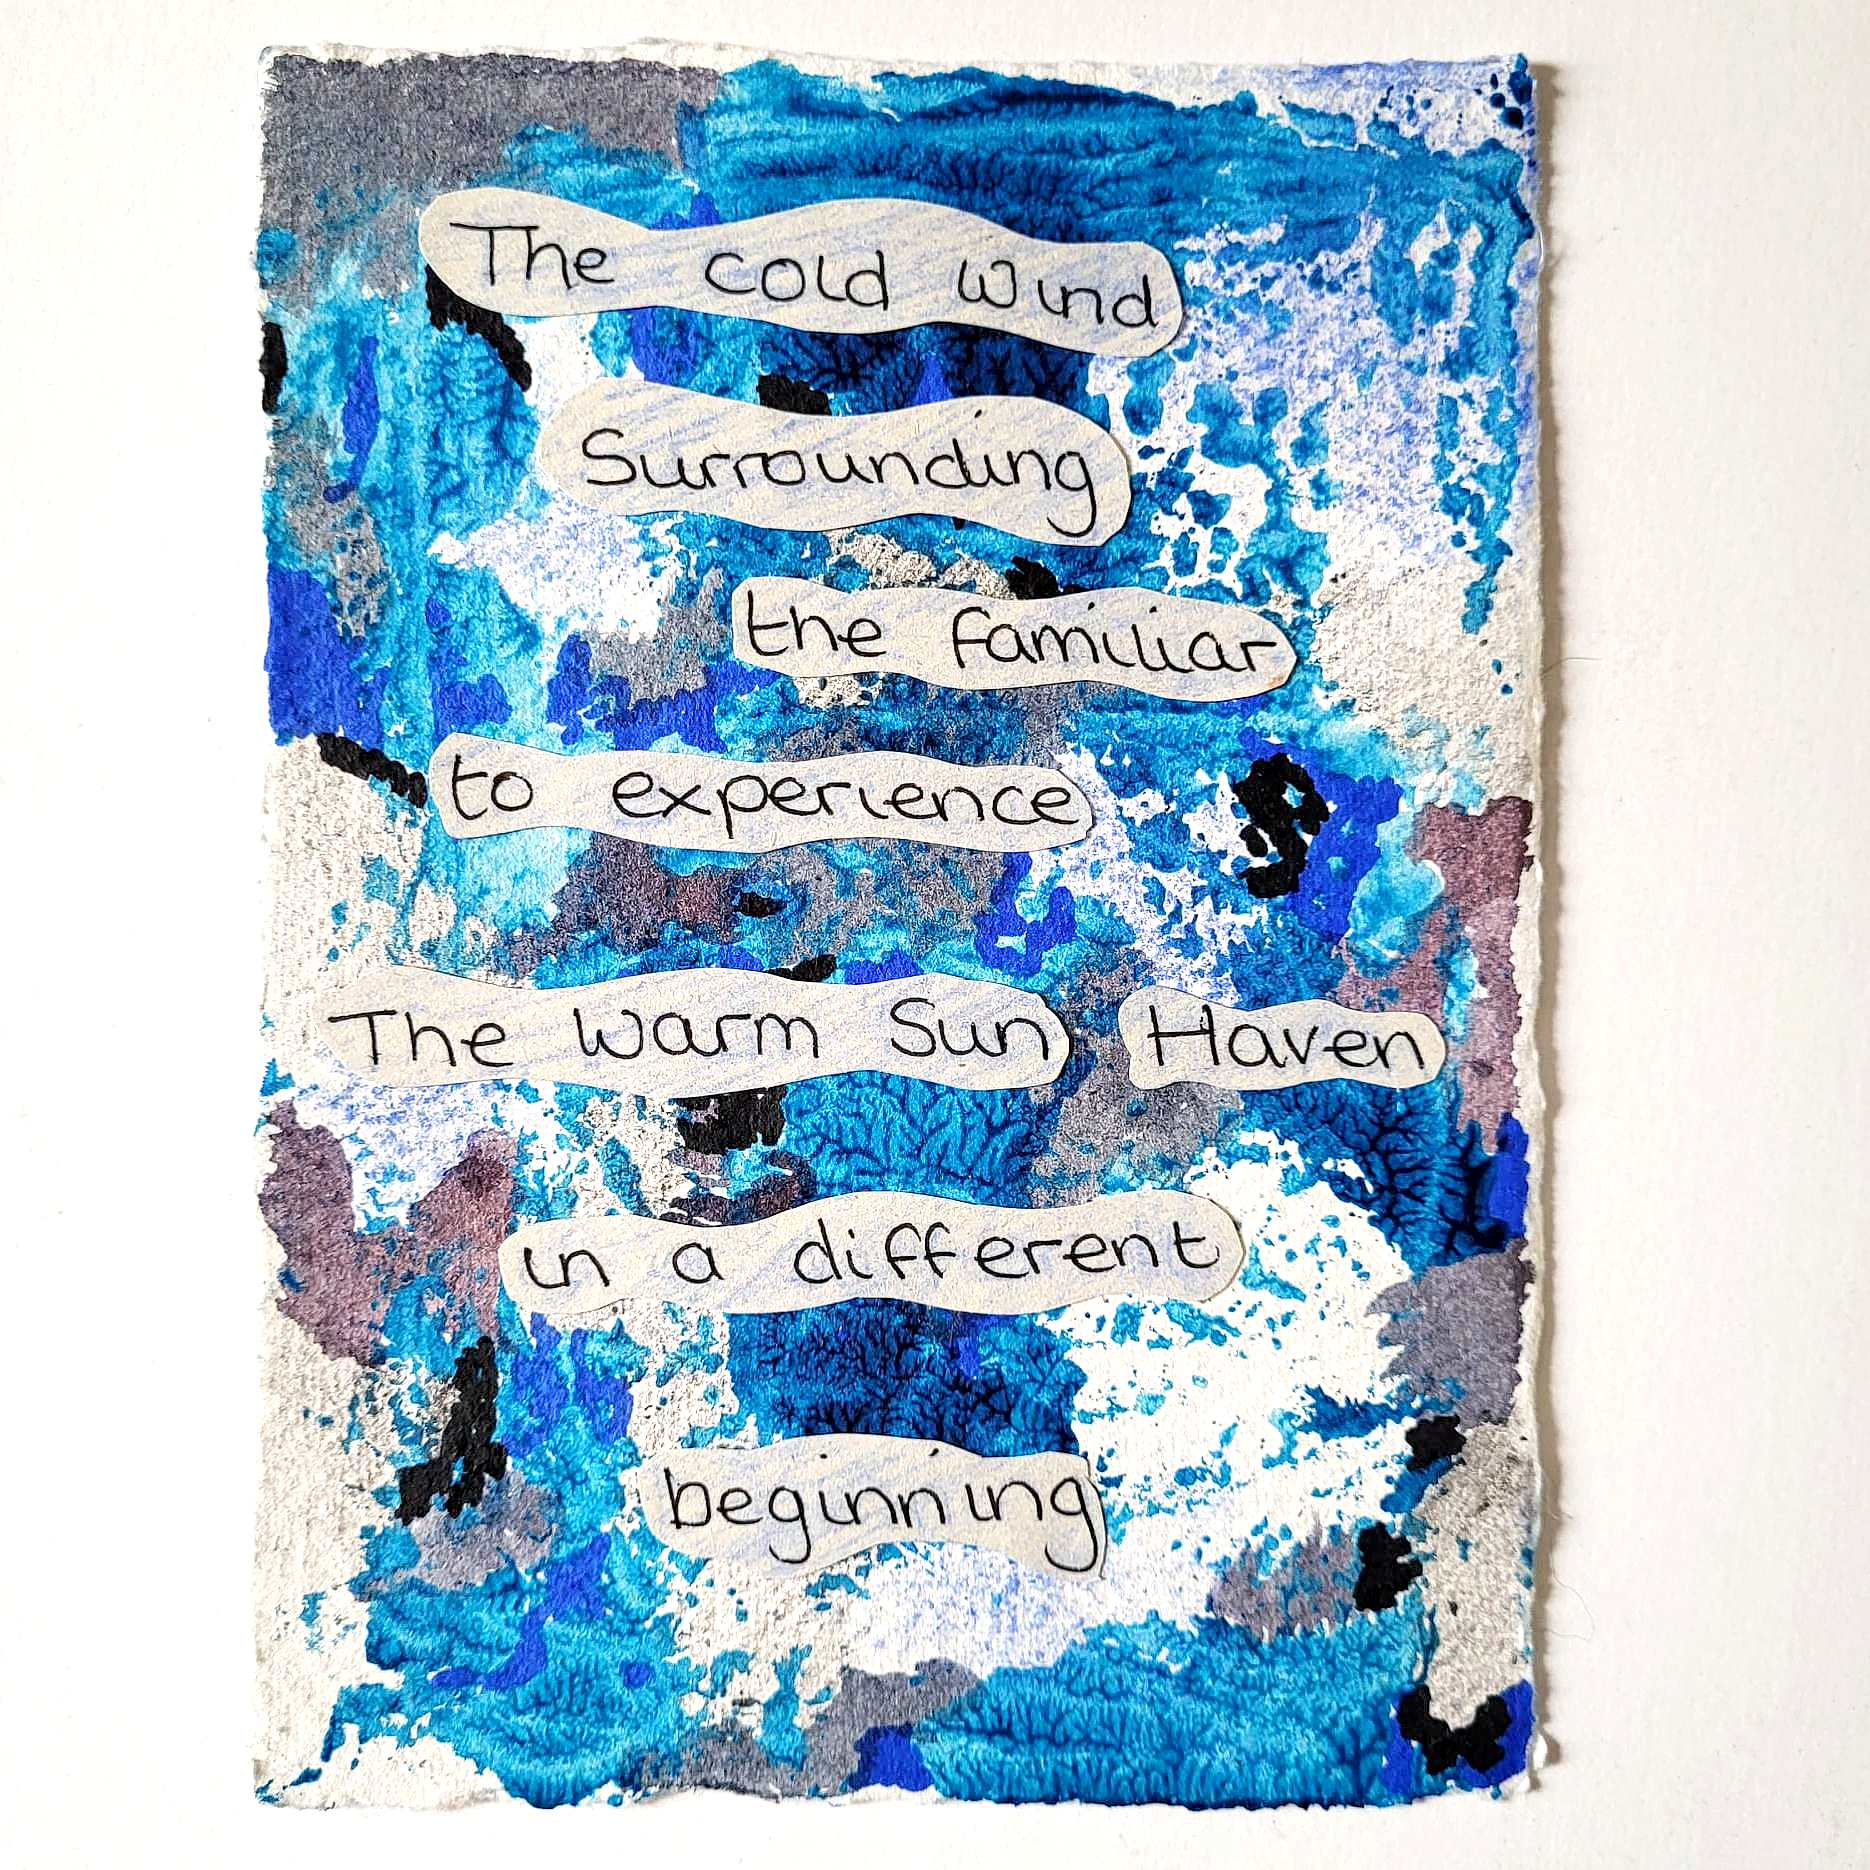 The cold Wind
Surrounding
the familiar
to experience
The Warm Sun Haven
in a different
beginning